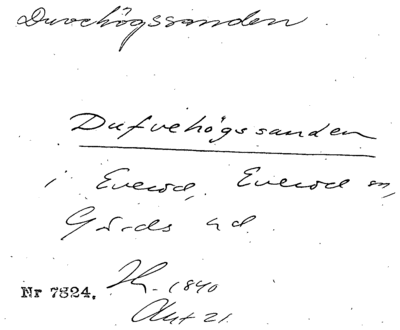 Duvehögssanden.
Dufvehögssanden
i Everöd, Everöd sn,
Gärds hd.
Nr 7824. 1840
Akt 21.